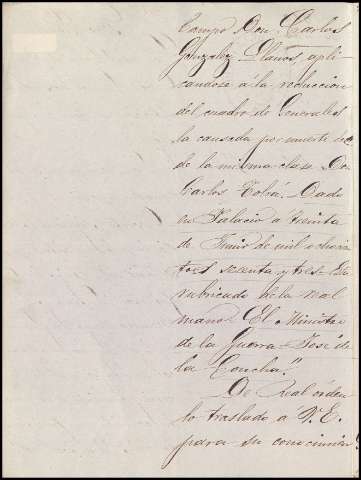 Campo Don Carlos
Gonzalez Llanos, apli-
candose á la reduccion
del cuadro de Generales
la causada por muerte del
de la misma clase Don
Carlos Tolrá. Dado
en Palacio á treinta
de Junio de mil ochocien
tos sesenta y tres. Está
rubricado de la real
mano. El Ministro
de la Guerra = José de
la Concha."
De Real órden
lo traslado á V. E.
para su conocimien